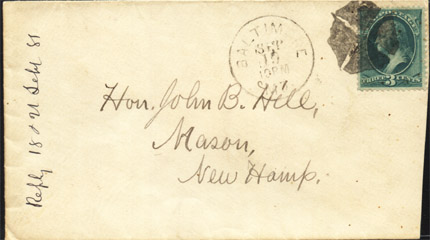 BALTIMORE
SEP
15
UNITED STATES
THREE 3 CENTS
Hon. John B. Hill,
Mason,
New Hamp.
Reply 18 & 21 Sebr 81